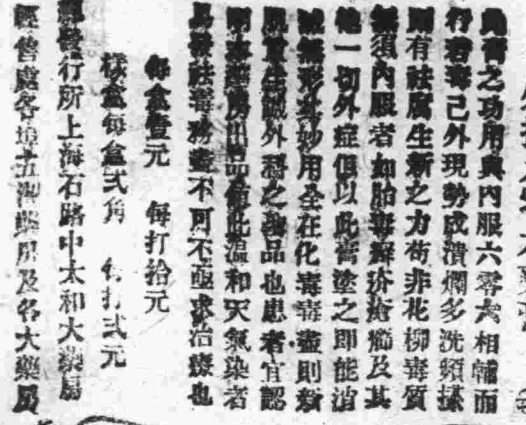 此膏之功用與內服六零六相輔而
行若毒已外現勢成潰爛多洗頻搽
則有祛腐生新之力苟非花柳毒質
無須內服者如胎毒癬疥瘡癤及其
他一切外症但以此膏塗之即能消
滅無形其妙用全在化毒毒盡則新
肌重生誠外科之品也患者宜認
明本藥房出品值此溫和天氣染者
易發祛毒務盡不可不亟求治療也
每盒壹元 每打拾元
樣盒每盒弍角 每打弍元
總發行所上海石路中太和大藥房
經售處各埠五洲藥房及各大藥房